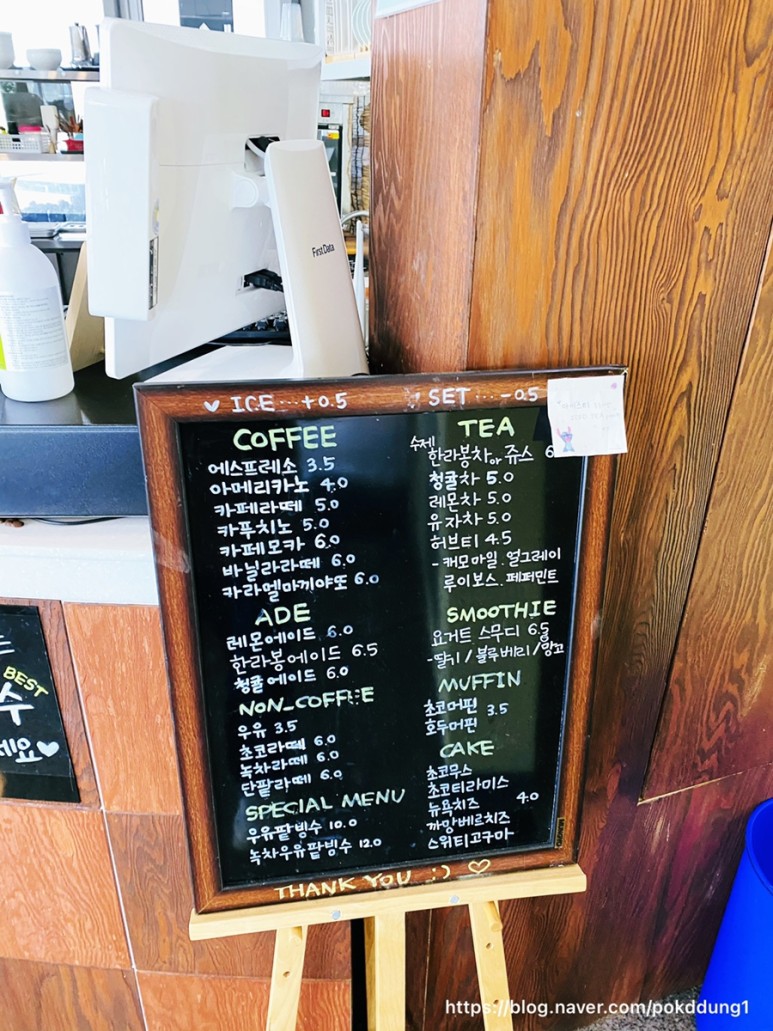 First Data
ICE...+0.5
SET...-0.5
COFFEE
에스프레소 3.5
아메리카노 4.0
카페라떼 5.0
카푸치노 5.0
카페모카 6.0
바닐라라떼 6.0
카라멜마끼야또 6.0
ADE
레몬에이드 6.0
한라봉에이드 6.5
청귤에이드 6.0
NON-COFFEE
우유 3.5
초코라떼 6.0
녹차라떼 6.0
단팥라떼 6.0
SPECIAL MENU
우유팥빙수 10.0
녹차우유팥빙수 12.0
TEA
수제 한라봉차or쥬스
청귤차 5.0
레몬차 5.0
유자차 5.0
허브티 4.5
-캐모마일. 얼그레이
루이보스. 페퍼민트
SMOOTHIE
요거트 스무디 6.5
-딸기/블루베리/망고
MUFFIN
초코머핀 3.5
호두머핀
CAKE
초코무스
초코티라미스
뉴욕치즈 4.0
까망베르치즈
스위티고구마
THANK YOU :)
BEST
수
세요
https://blog.naver.com/pokddung1